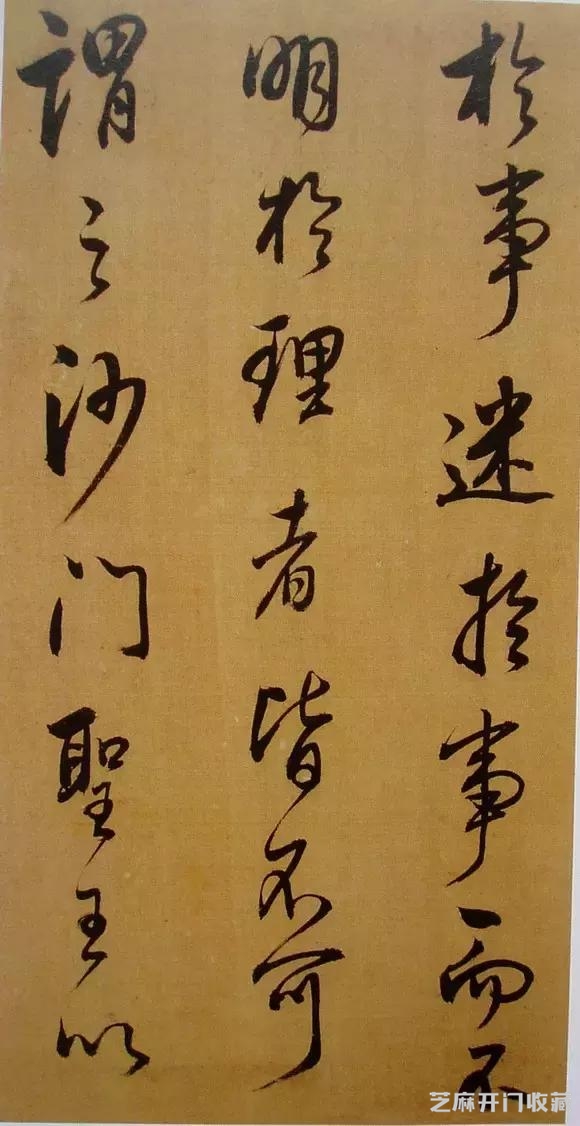 於事迷於事而不
明於理者皆不可
謂之沙门聖王以
芝麻开门收藏